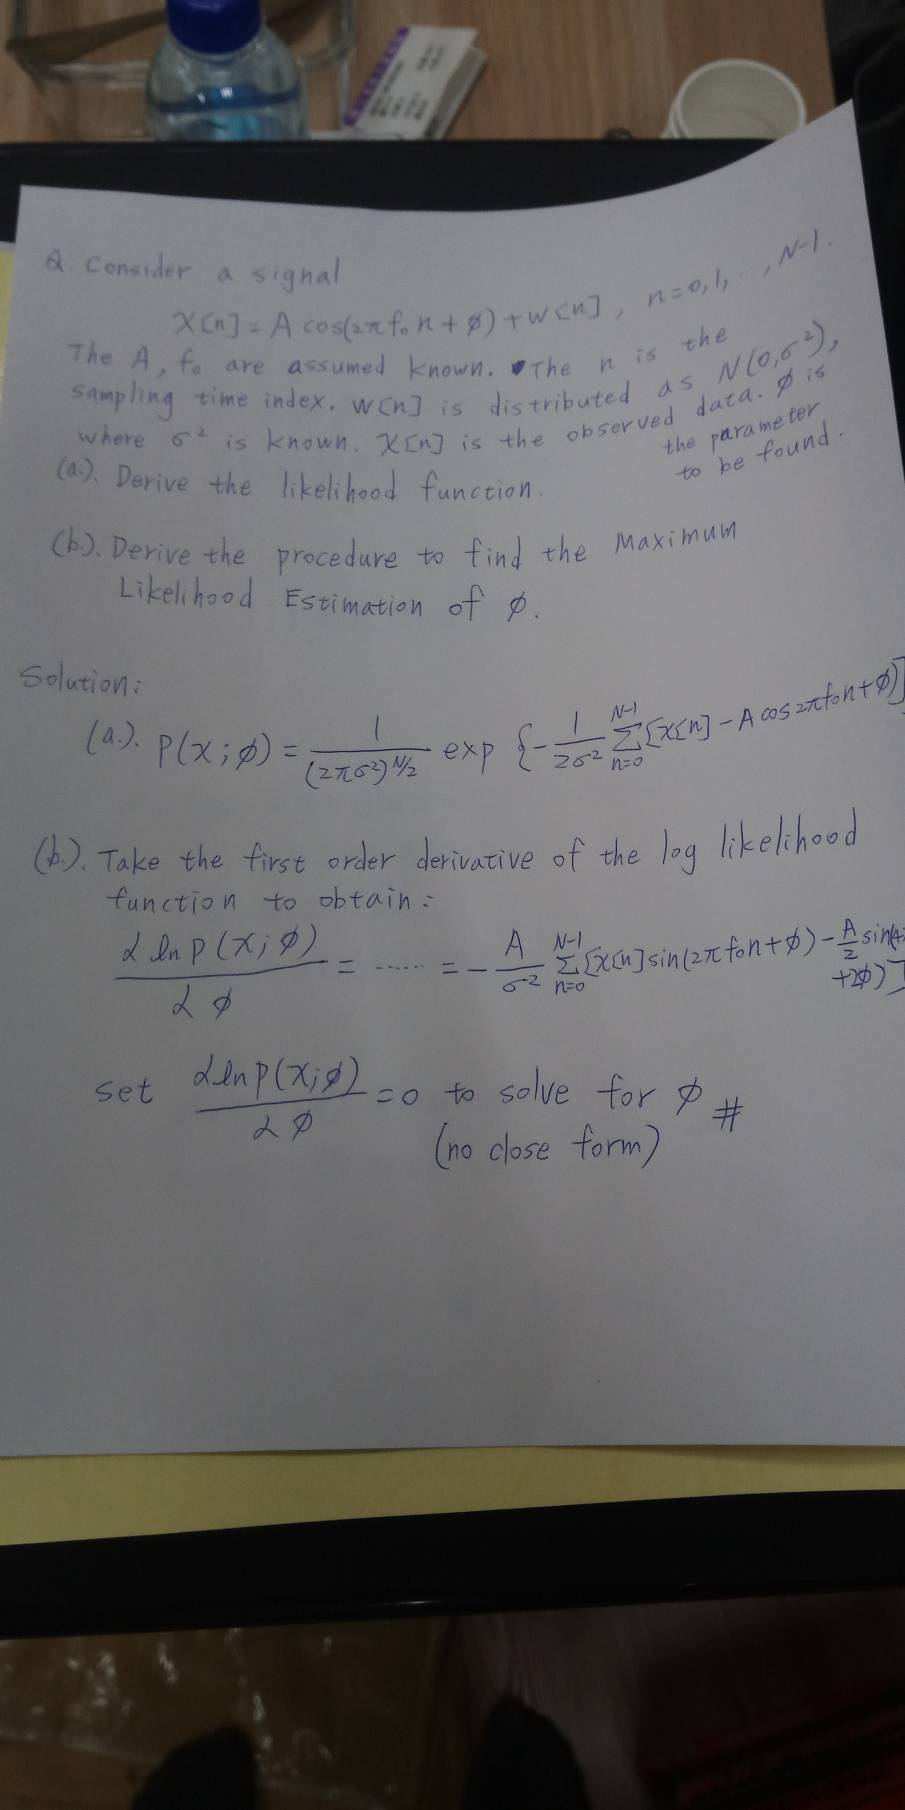 Q. Consider a signal
X[n] = A cos(2πf₀n + ϕ) + W[n], n=0,1,...,N-1.
The A, f₀ are assumed known. The n is the
sampling time index. W[n] is distributed as N(0,σ²),
where σ² is known. X[n] is the observed data. ϕ is
the parameter
to be found.
(a.). Derive the likelihood function.
(b.). Derive the procedure to find the Maximum
Likelihood Estimation of ϕ.
Solution:
(a.). P(x;ϕ) = 1/(2πσ²)^(N/2) exp {-1/(2σ²) Σ_{n=0}^{N-1} [x[n] - A cos 2πf₀n+ϕ)]
(b.). Take the first order derivative of the log likelihood
function to obtain:
∂ ln P(x;ϕ)/∂ϕ = ...... = -A/σ² Σ_{n=0}^{N-1} [x[n] sin(2πf₀n+ϕ) - A/2 sin(4
+2ϕ)]
set ∂ ln P(x;ϕ)/∂ϕ = 0 to solve for ϕ #
(no close form)